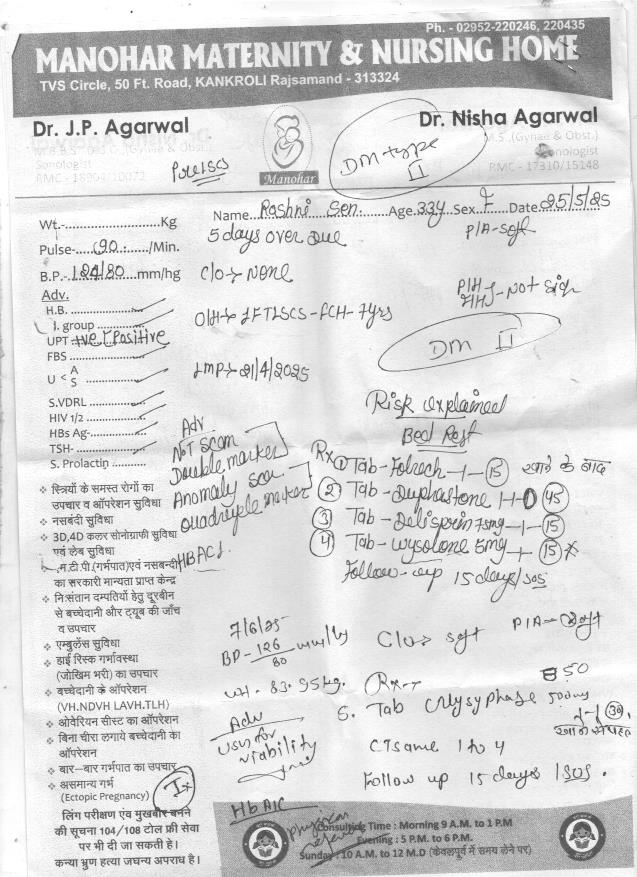 Ph. - 02952-220246, 220435
MANOHAR MATERNITY & NURSING HOME
TVS Circle, 50 Ft. Road, KANKROLI Rajsamand - 313324
Dr. J.P. Agarwal
Sonologist
RMC - 18904/10072
Manohar
DM type II
Dr. Nisha Agarwal
M.S. (Gynae & Obst.)
Sonologist
RMC - 17310/15148
Name Rashni Sen Age 33y Sex F Date 25/5/25
Wt.-..........Kg
Pulse- 90 /Min.
B.P.- 124/80 mm/hg
5 days over due
P/A-soft
C/o → None
Adv.
H.B.
I. group
UPT +ve (Positive
FBS
U < A S
S.VDRL
HIV 1/2
HBs Ag-
TSH-
S. Prolactin
O/H → 1 FTLSCS-FCH-7yrs
Not Sig
DM II
LMP → 21/4/2025
Risk explained
Bed Rest
Adv
NT scan
Double marker
Anomaly scan
Quadruple marker
HBAC1
Rx ① Tab - 1 - ⑮ खाने के बाद
② Tab - Duphastone 1-1 ㊺
③ Tab - 75mg - 1 - ⑮
④ Tab - Wysolone 5mg ⑮
Follow-up 15 days/sos
❖ स्त्रियों के समस्त रोगों का
उपचार व ऑपरेशन सुविधा
❖ नसबंदी सुविधा
❖ 3D,4D कलर सोनोग्राफी सुविधा
एवं लेब सुविधा
❖ म.टी.पी.(गर्भपात)एवं नसबन्दी
का सरकारी मान्यता प्राप्त केन्द्र
❖ निःसंतान दम्पतियों हेतु दूरबीन
से बच्चेदानी और ट्यूब की जाँच
व उपचार
❖ एम्बुलेंस सुविधा
❖ हाई रिस्क गर्भावस्था
(जोखिम भरी) का उपचार
❖ बच्चेदानी के ऑपरेशन
(VH.NDVH LAVH.TLH)
❖ ओवेरियन सीस्ट का ऑपरेशन
❖ बिना चीरा लगाये बच्चेदानी का
ऑपरेशन
❖ बार-बार गर्भपात का उपचार
❖ असमान्य गर्भ
(Ectopic Pregnancy)
7/6/25
BP- 126/80 mm/hg
C/o → soft P/A - soft
wt. 83.95kg. Rx
Adv
USG for viability
5. Tab 500mg
1-1 ㉚
खाने से पहले
CT same 1 to 4
Follow up 15 days / sos.
HbA1C
physician
लिंग परीक्षण एंव मुखबीर बनने
की सूचना 104/108 टोल फ्री सेवा
पर भी दी जा सकती है।
कन्या भ्रुण हत्या जघन्य अपराध है।
Consulting Time : Morning 9 A.M. to 1 P.M
Evening : 5 P.M. to 6 P.M.
Sunday : 10 A.M. to 12 M.D (केवलपूर्व में समय लेने पर)